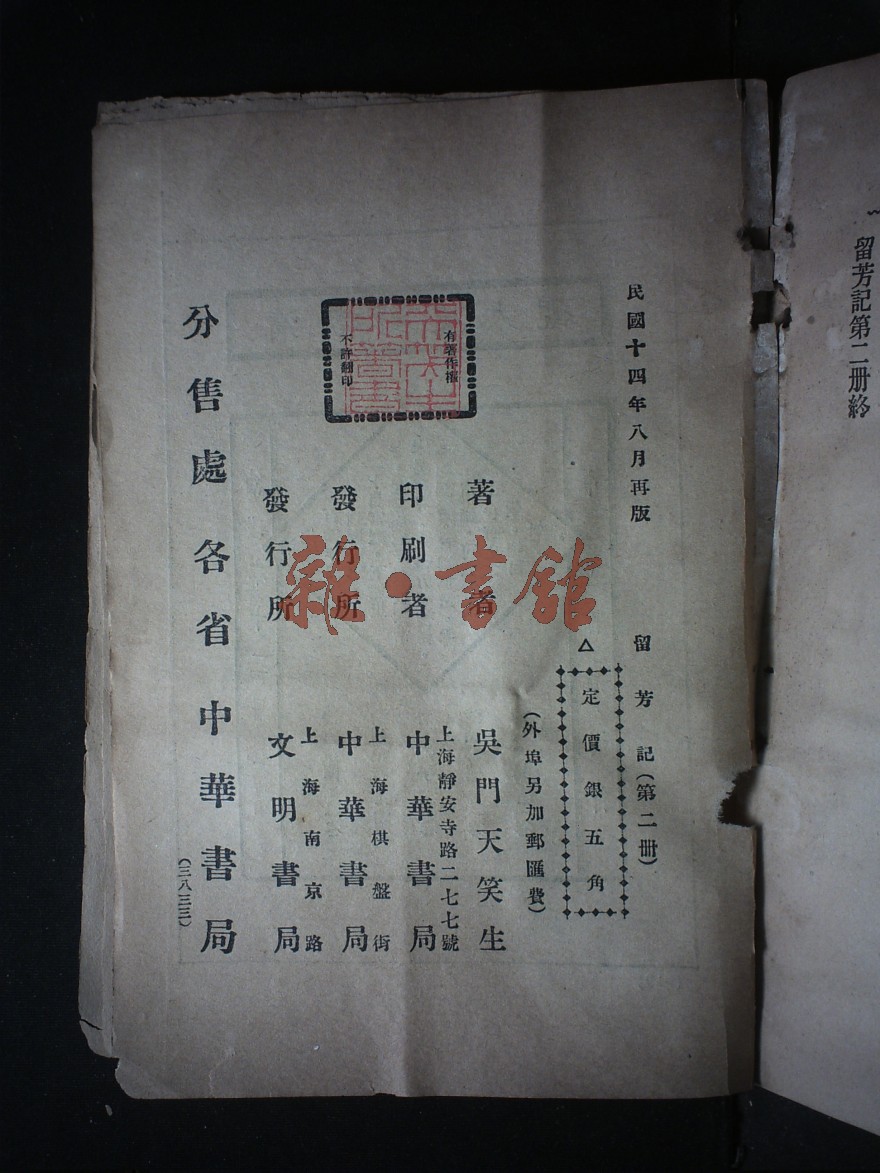 留芳記第二册終
民國十四年八月再版
留芳記(第二册)
△
定價銀五角
(外埠另加郵匯費)
著者
吳門天笑生
印刷者
上海靜安寺路二七七號
中華書局
發行所
上海棋盤街
中華書局
發行所
上海南京路
文明書局
分售處各省中華書局
(三八三三)
有著作權
不許翻印
雜·書館